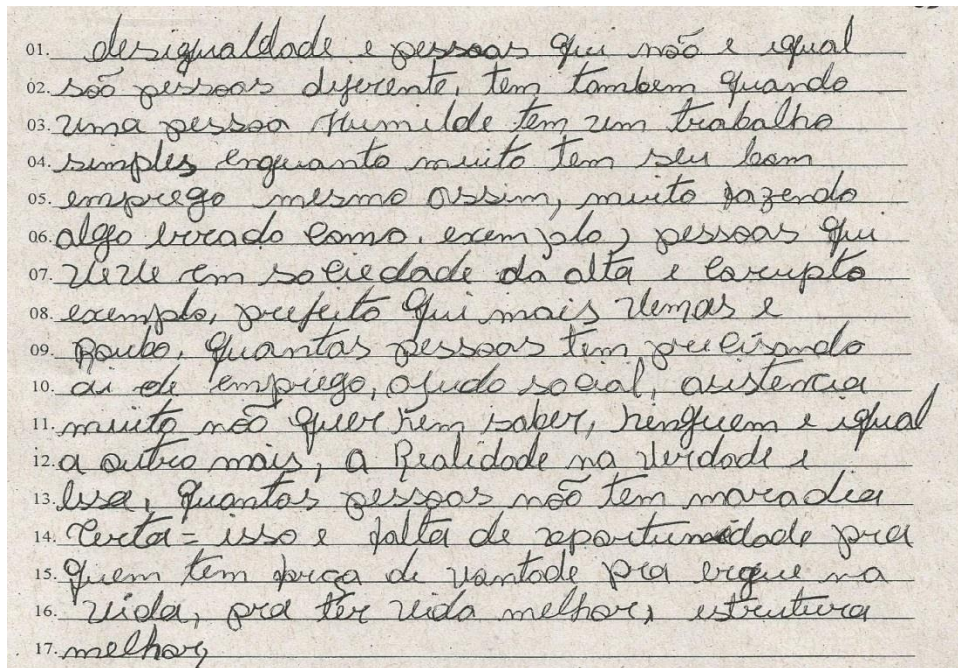 01. desigualdade e pessoas qui não e igual
02. são pessoas diferente, tem tambem quando
03. uma pessoa Humilde tem um trabalho
04. simples enquanto muito tem seu bom
05. emprego mesmo assim, muito fazendo
06. algo errado como, exemplo, pessoas qui
07. vive em sociedade da alta e corrupto
08. exemplo, prefeito qui mais vemas e
09. Roubo, quantas pessoas tem precisando
10. ai de emprego, ajuda social, asistencia
11. muito não quer nem saber, ninguem e igual
12. a outro mais, a Realidade na verdade e
13. essa, quantas pessoas não tem moradia
14. certa = isso e falta de oportunidade pra
15. quem tem força de vontade pra ergue na
16. vida, pra ter vida melhor, estrutura
17. melhor,